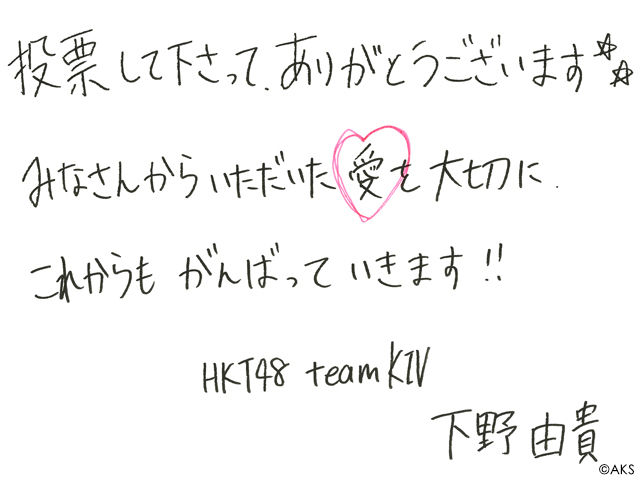 投票して下さって、ありがとうございます☆☆
みなさんからいただいた愛を大切に
これからも がんばって いきます!!
HKT48 teamKIV
下野由貴
©AKS